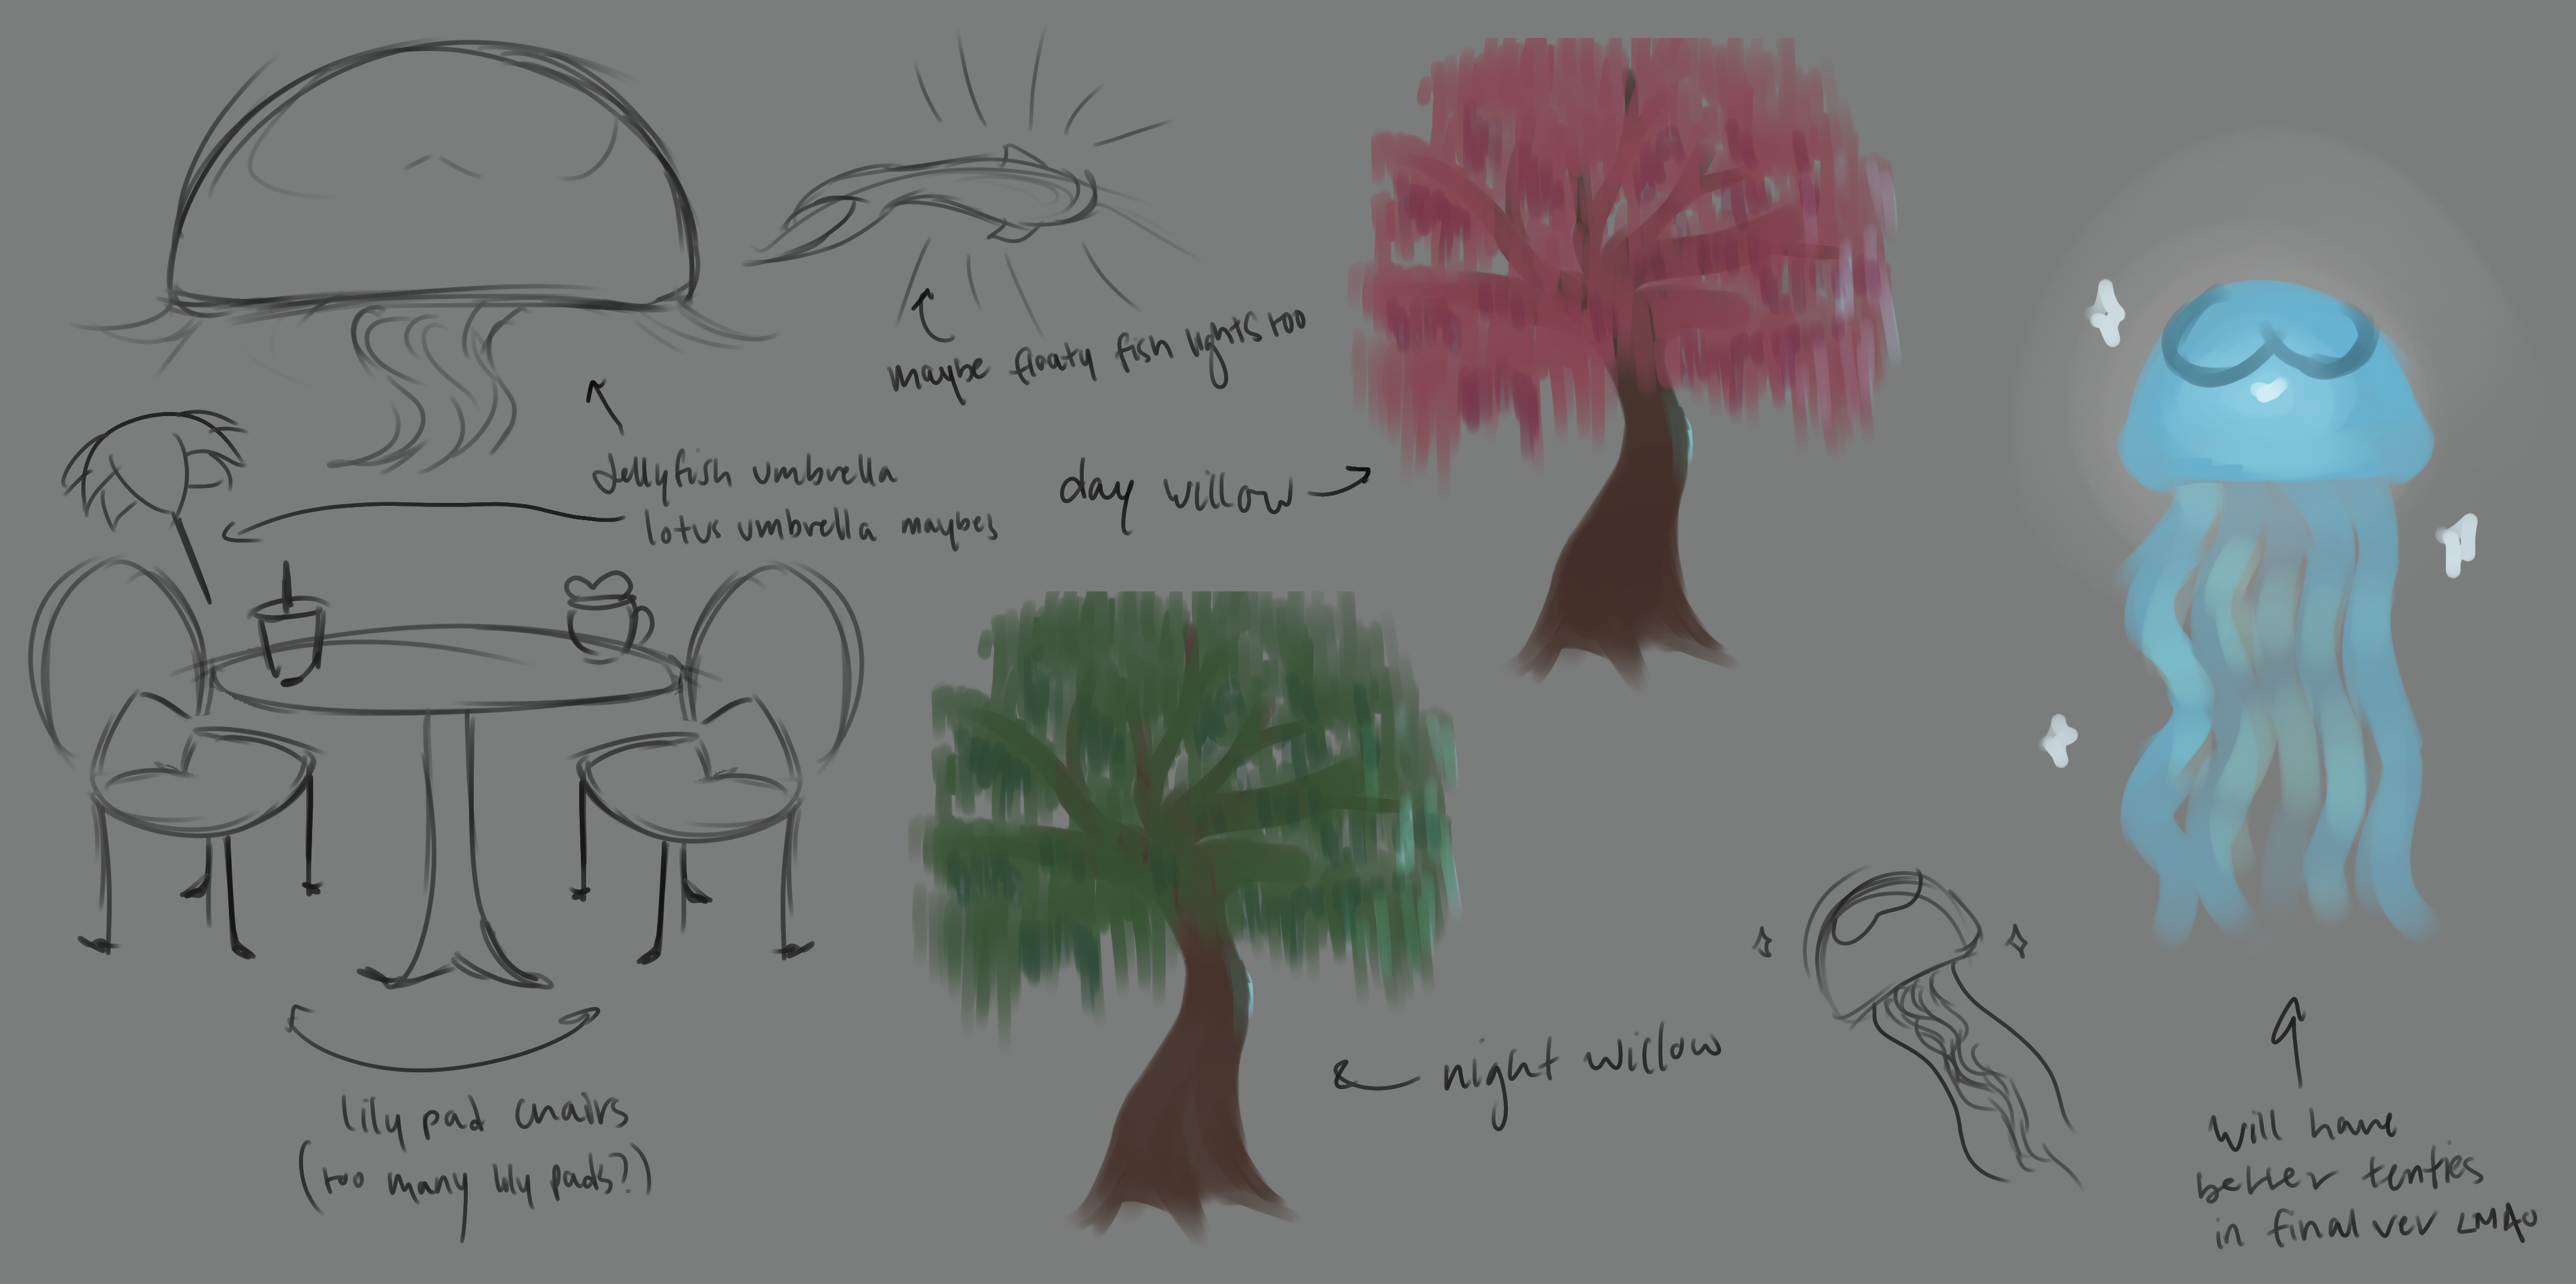 maybe floaty fish lights too
Jellyfish umbrella
lotus umbrella maybes
day willow
night willow
lily pad chairs
(too many lily pads?)
will have
better tenties
in final ver LMAO